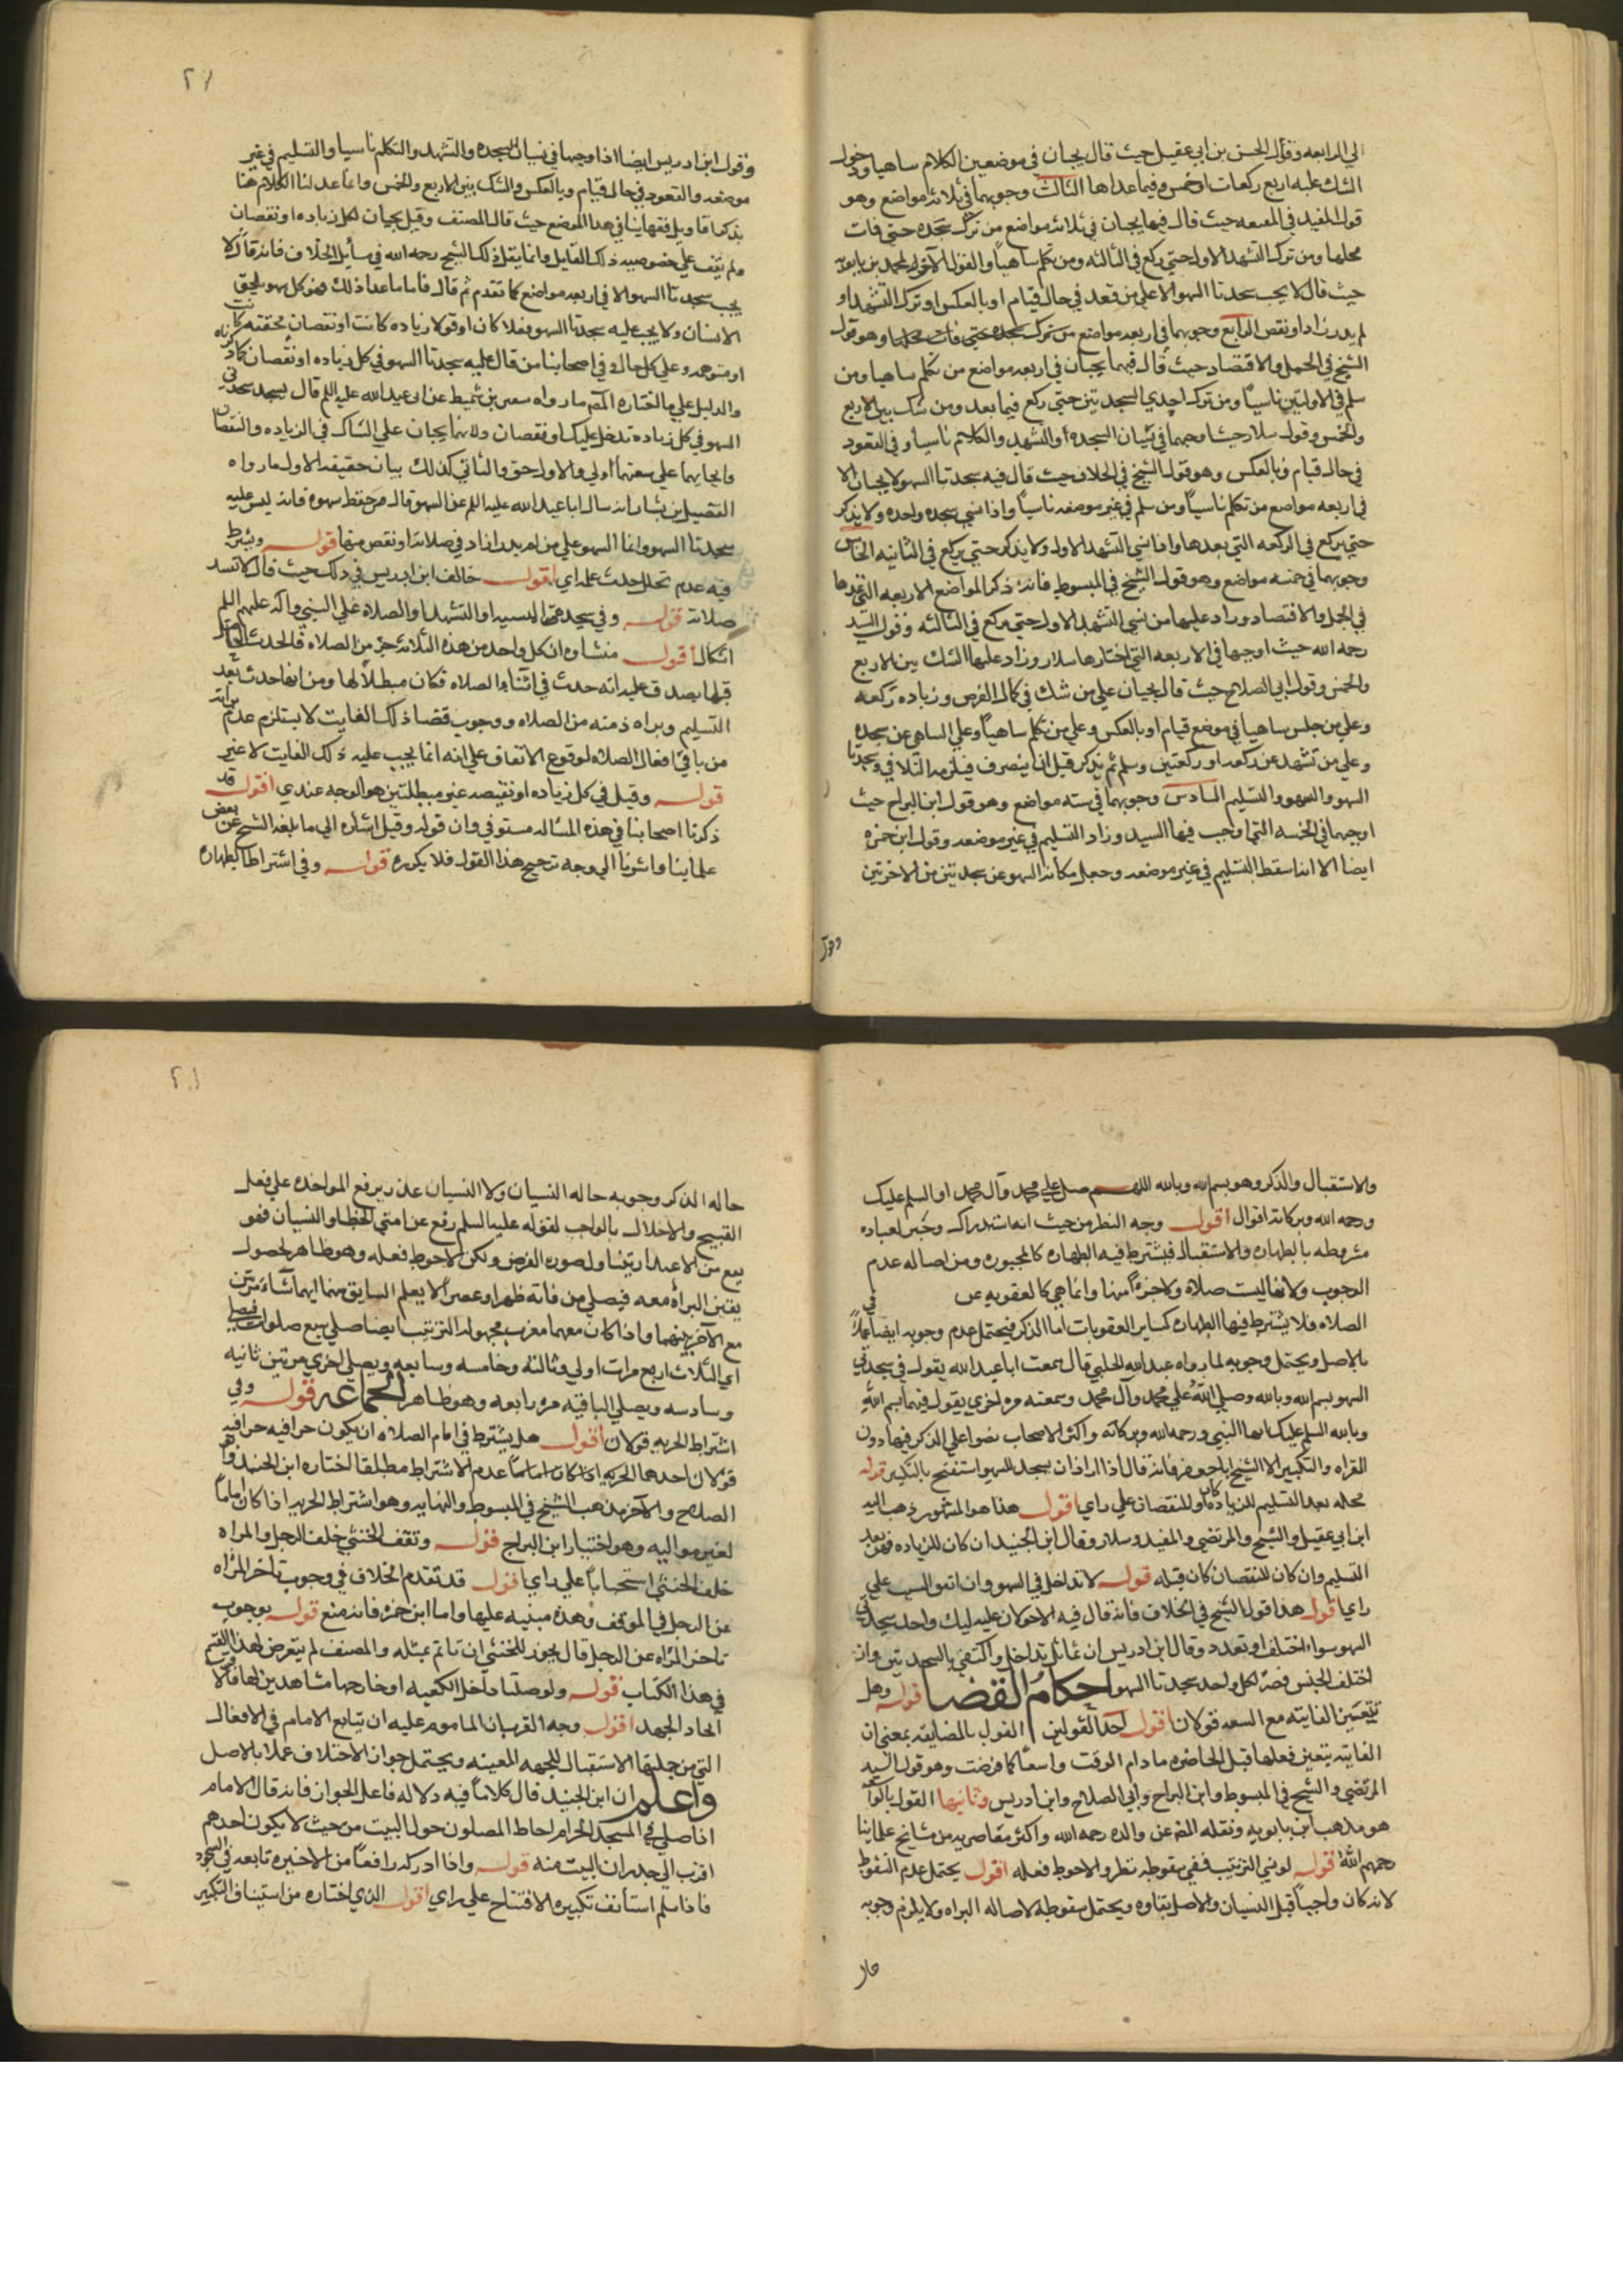 الي الرابعه وقول الحسن بن ابي عقيل حيث قال يجبان في موضعين الكلام ساهيا ودخول
الشك عليه اربع ركعات او خمس وفيما عداها الثالث وجوبهما في ثلاثه مواضع وهو
قول المفيد في المقنعه حيث قال فيها يجبان في ثلاثه مواضع من ترك سجده حتى فات
محلها ومن ترك التشهد الاول حتي ركع في الثالثه ومن تكلم ساهياً والقول الآخر لمحمد بن بابويه
حيث قال لا يجب سجدتا السهو الا علي من قعد في حال قيام او بالعكس او ترك التشهد او
لم يدر زاد او نقص الرابع وجوبهما في اربعه مواضع من ترك سجده حتي فات محلها وهو قول
الشيخ في الجمل والاقتصاد حيث قال فيهما يجبان في اربعه مواضع من تكلم ساهيا ومن
سلم في الاولتين ناسياً ومن ترك احدي السجدتين حتي ركع فيما بعد ومن شك بين الاربع
والخمس وقول سلار حيث اوجبهما في نسيان السجده او التشهد والكلام ناسياً وفي القعود
في حال قيام وبالعكس وهو قول الشيخ في الخلاف حيث قال فيه سجدتا السهو لا يجبان الا
في اربعه مواضع من تكلم ناسياً ومن سلم في غير موضعه ناسياً واذا نسي سجده واحده ولا يذكر
حتي يركع في الركعه التي بعدها واذا نسي التشهد الاول ولا يذكر حتي يركع في الثانيه الخامس
وجوبهما في خمسه مواضع وهو قول الشيخ في المبسوط فانه ذكر المواضع الاربعه التي عدها
في الجمل والاقتصاد وزاد عليها من نسي التشهد الاول حتي يركع في الثالثه وقول السيد
رحمه الله حيث اوجبها في الاربعه التي اختارها سلار وزاد عليها الشك بين الاربع
والخمس وقول ابي الصلاح حيث قال يجبان علي من شك في كمال الفرض وزياده ركعه
وعلي من جلس ساهيا في موضع قيام او بالعكس وعلي من تكلم ساهياً وعلي الساهي عن سجده
وعلي من تشهد عن ركعه او ركعتين وسلم ثم يذكر قبل ان ينصرف فيلزمه التلافي وسجدتا
السهو والسهو والتسليم السادس وجوبهما في سته مواضع وهو قول ابن البراج حيث
اوجبهما في الخمسه التي اوجب فيها السيد وزاد التسليم في غير موضعه وقول ابن حمزه
ايضا الا انه اسقط التسليم في غير موضعه وجعل مكانه السهو عن سجدتين من الاخرتين
وقول
وقول ابن ادريس ايضا اذا وجبهما في نسيان السجده والتشهد والتكلم ناسيا والتسليم في غير
موضعه والقعود في حال قيام وبالعكس والشك بين الاربع والخمس وانما عدلنا الكلام هنا
بذكر اقاويل فقهاينا في هذا الموضع حيث قال المصنف وقيل يجبان لكل زياده او نقصان
ولم يقف علي خصوصيه ذلك القايل وانما ينقل ذلك الشيخ رحمه الله في مسايل الخلاف فانه قال لا
يجب سجدتا السهو الا في اربعه مواضع كما تقدم ثم قال فاما ما عدا ذلك فهو كل سهو يلحق
الانسان ولا يجب عليه سجدتا السهو فعلا كان او قولا زياده كانت او نقصان محققه كانت
او متوهمه وعلي كل حال وفي اصحابنا من قال عليه سجدتا السهو في كل زياده او نقصان كما ذكرناه
والدليل علي ما اختاره المص ما رواه سعين بن شميط عن ابي عبد الله عليه السلم قال يسجد سجدتي
السهو في كل زياده تدخل عليك او نقصان ولانهما يجبان علي الشاك في الزياده والنقصان
فايجابهما علي سعتهما اولي والاول حق والثاني كذلك بيان حقيقه الاول ما رواه
الفضيل بن يسار انه سال ابا عبد الله عليه السلم عن السهو قال من حفظ سهوه فاتمه ليس عليه
سجدتا السهو وانما السهو علي من لم يدر ازاد في صلاته او نقص منها قوله ويشترط
فيه عدم تخلل الحدث علي راي اقول خالف ابن ادريس في ذلك حيث قال لا تفسد
صلاته قوله وفي سجدتي المنسيه او التشهد او الصلاه علي النبي وآله عليهم السلم
اشكال اقول منشاوه ان كل واحد من هذه الثلاثه جزء من الصلاه فالحدث المتخلل
قبلها يصدق عليه انه حدث في اثناء الصلاه فكان مبطلاً لها ومن انه احدث بعد
التسليم وبراه ذمته من الصلاه ووجوب قضا ذلك الفايت لا يستلزم عدم براته
من باقي افعال الصلاه لوقوع الاتفاق علي انه انما يجب عليه ذلك الفايت لا غير
قوله وقيل في كل زياده او نقيصه غير مبطلتين هو الوجه عندي اقول قد
ذكرنا اصحابنا في هذه المساله مستوفي وان قوله وقيل اشاره الي ما بلغه الشيخ عن بعض
علمائنا واشرنا الي وجه ترجيح هذا القول فلا يكرره قوله وفي اشتراط الطهاره
والاستقبال والذكر وهو بسم الله وبالله اللهم صل علي محمد وآل محمد او السلم عليك
ورحمه الله وبركاته اقوال اقول وجه النظر من حيث انه استدراك وجبر لعباده
مشروطه بالطهاره والاستقبال فيشترط فيه الطهاره كالمجبوره ومن اصاله عدم
الوجوب ولانها ليست صلاه ولا جزءاً منها وانما هي كالعقوبه عن
الصلاه فلا يشترط فيها الطهاره كساير العقوبات اما الذكر فيحتمل عدم وجوبه ايضا عملاً
بالاصل ويحتمل وجوبه لما رواه عبد الله الحلبي قال سمعت ابا عبد الله يقول في سجدتي
السهو بسم الله وبالله وصلي الله علي محمد وآل محمد وسمعته مره اخري يقول فيهما بسم الله
وبالله السلم عليك ايها النبي ورحمه الله وبركاته واكثر الاصحاب نصوا علي الذكر فيها دون
القراه والتكبير الا الشيخ ابا جعفر فانه قال اذا اراد ان يسجد للسهو استفتح بالتكبير قوله
محله بعد التسليم للزياده كان او للنقصان علي راي اقول هذا هو المشهور ذهب اليه
ابن ابي عقيل والشيخ والمرتضي والمفيد وسلار وقال ابن الجنيد ان كان للزياده فهو بعد
التسليم وان كان للنقصان كان قبله قوله لا تداخل في السهو وان اتفق السبب علي
راي اقول هذا قول الشيخ في الخلاف فانه قال فيه الاحوط ان عليه لكل واحد سجدتي
السهو سواء اختلف او تعدد وقال ابن ادريس ان تماثل تداخل واكتفي بالسجدتين وان
اختلف الجنس فصر لكل واحد سجدتا السهو احكام القضا قوله وهل
تتعين الفايته مع السعه قولان اقول احد القولين القول بالمضايقه بمعني ان
الفايته يتعين فعلها قبل الحاضره ما دام الوقت واسعاً كما فرضت وهو قول السيد
المرتضي والشيخ في المبسوط وابن البراج وابي الصلاح وابن ادريس وثانيهما القول بالتوسعه
هو مذهب ابن بابويه ونقله المص عن والده رحمه الله واكثر معاصريه من مشايخ علماينا
رحمهم الله قوله لو نسي الترتيب ففي سقوطه نظر والاحوط فعله اقول يحتمل عدم السقوط
لانه كان واجباً قبل النسيان والاصل بقاوه ويحتمل سقوطه لاصاله البراه ولا يلزم وجوبه
حال
حاله الذكر وجوبه حاله النسيان ولا النسيان عذر يرفع المواخذه علي فعل
القبيح والاخلال بالواجب لقوله عليه السلم رفع عن امتي الخطا والنسيان فهو
يقين البرأه معه فيصلي من فاته ظهر او عصر لا يعلم السابق منهما ايهما شاء مرتين
مع الآخر بينهما واذا كان معهما مغرب مجهوله الترتيب ايضا صلي سبع صلوات فيصلي
اي الثلاث اربع مرات اولي وثالثه وخامسه وسابعه ويصلي اخري مرتين ثانيه
وسادسه ويصلي الباقيه مره رابعه وهو ظاهر الجماعه قوله وفي
اشتراط الحريه قولان اقول هل يشترط في امام الصلاه ان يكون حرا فيه
قولان احدهما عدم الاشتراط مطلقا اختاره ابن الجنيد وابو
الصلاح والآخر مذهب الشيخ في المبسوط والنهايه وهو اشتراط الحريه اذا كان اماماً
لغير مواليه وهو اختيار ابن البراج قوله وتقف الخنثي خلف الرجل والمراه
خلف الخنثي استحباباً علي راي اقول قد تقدم الخلاف في وجوب تاخر المراه
عن الرجل في الموقف وهذه مبنيه عليها واما ابن حمزه فانه منع قوله بوجوب
تاخر المراه عن الرجل قال يجوز للخنثي ان تاتم بمثله والمصنف لم يتعرض لهذا القسم
في هذا الكتاب قوله ولو صلتا داخل الكعبه او خارجها مشاهدين لها
اتحاد الجهه اقول وجه القرب ان الماموم عليه ان يتابع الامام في الافعال
التي من جملتها الاستقبال للجهه المعينه ويحتمل جواز الاختلاف عملا بالاصل
واعلم ان ابن الجنيد قال كلاماً فيه دلاله فاعل الجواز فانه قال الامام
اذا صلي في المسجد الحرام احاط المصلون حول البيت من حيث لا يكون احدهم
اقرب الي جدران البيت منه قوله واذا ادركه رافعاً من الاخيره تابعه في السجود
فاذا سلم استأنف تكبيره الافتتاح علي راي اقول الذي اختاره من استيناف التكبير